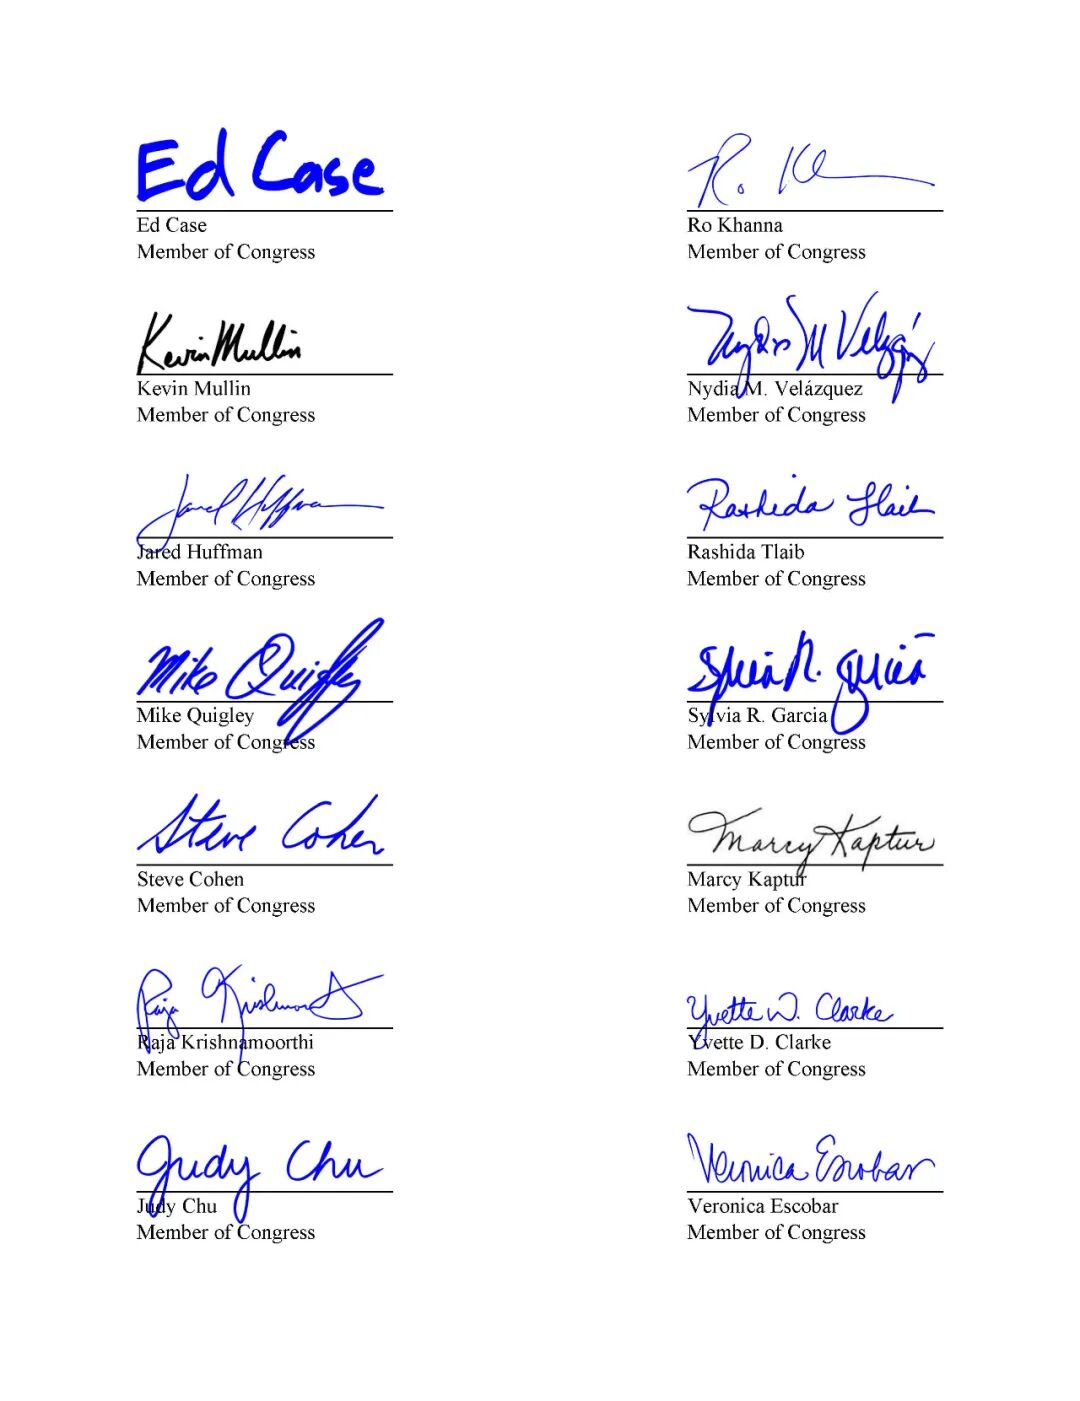 Ed Case
Ed Case
Member of Congress
R. Kh
Ro Khanna
Member of Congress
Kevin Mullin
Kevin Mullin
Member of Congress
Nydia M Velázquez
Nydia M. Velázquez
Member of Congress
Jared Huffman
Jared Huffman
Member of Congress
Rashida Tlaib
Rashida Tlaib
Member of Congress
Mike Quigley
Mike Quigley
Member of Congress
Sylvia R. Garcia
Sylvia R. Garcia
Member of Congress
Steve Cohen
Steve Cohen
Member of Congress
Marcy Kaptur
Marcy Kaptur
Member of Congress
Raja Krishnamoorthi
Raja Krishnamoorthi
Member of Congress
Yvette D. Clarke
Yvette D. Clarke
Member of Congress
Judy Chu
Judy Chu
Member of Congress
Veronica Escobar
Veronica Escobar
Member of Congress